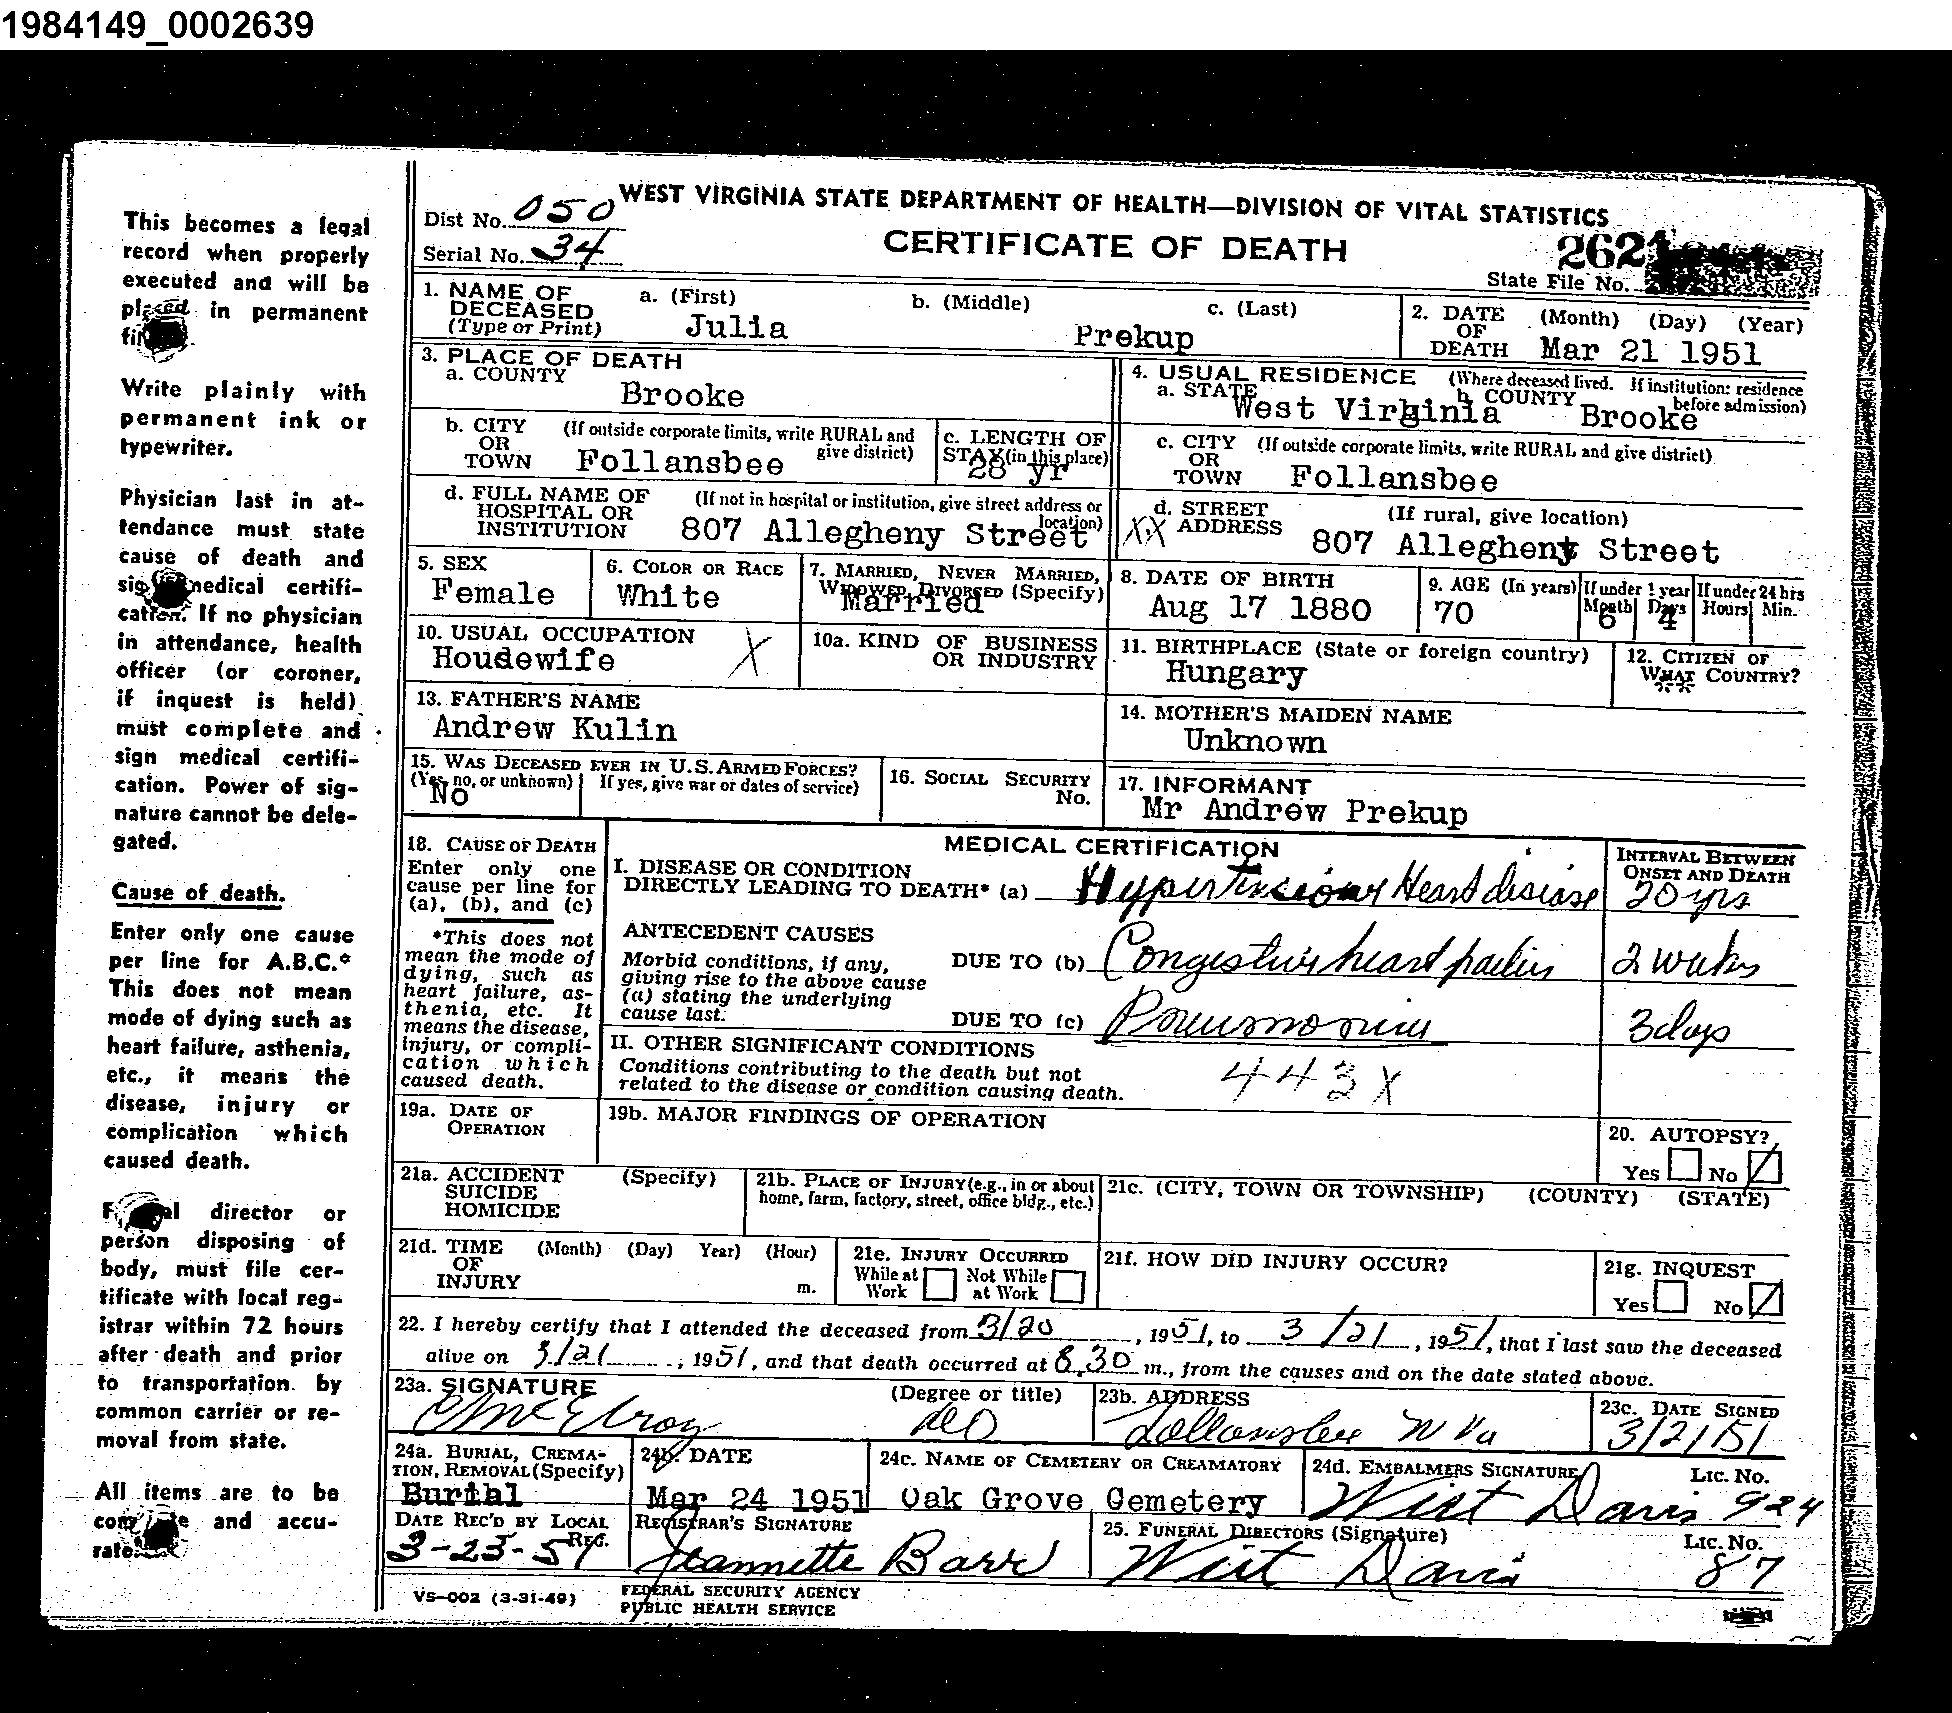 1984149_0002639
This becomes a legal
record when properly
executed and will be
placed in permanent
Write plainly with
permanent ink or
typewriter.
Physician last in at-
tendance must state
cause of death and
medical certifi-
cation. If no physician
in attendance, health
officer (or coroner,
if inquest is held)
must complete and
sign medical certifi-
cation. Power of sig-
nature cannot be dele-
gated.
Cause of death.
Enter only one cause
per line for A.B.C.*
This does not mean
mode of dying such as
heart failure, asthenia,
etc., it means the
disease, injury or
complication which
caused death.
director or
person disposing of
body, must file cer-
tificate with local reg-
istrar within 72 hours
after death and prior
to transportation by
common carrier or re-
moval from state.
All items are to be
and accu-
rate
WEST VIRGINIA STATE DEPARTMENT OF HEALTH—DIVISION OF VITAL STATISTICS
Dist No. 050
CERTIFICATE OF DEATH
Serial No. 34
2621
State File No.
1. NAME OF DECEASED (Type or Print)
a. (First) Julia
b. (Middle)
c. (Last) Prekup
2. DATE OF DEATH (Month) (Day) (Year)
Mar 21 1951
3. PLACE OF DEATH
a. COUNTY Brooke
b. CITY OR TOWN (If outside corporate limits, write RURAL and give district)
Follansbee
c. LENGTH OF STAY (in this place)
28 yr
d. FULL NAME OF HOSPITAL OR INSTITUTION (If not in hospital or institution, give street address or location)
807 Allegheny Street
4. USUAL RESIDENCE (Where deceased lived. If institution: residence before admission)
a. STATE West Virginia
b. COUNTY Brooke
c. CITY OR TOWN (If outside corporate limits, write RURAL and give district)
Follansbee
XX d. STREET ADDRESS (If rural, give location)
807 Allegheny Street
5. SEX Female
6. COLOR OR RACE White
7. MARRIED, NEVER MARRIED, WIDOWED, DIVORSED (Specify)
Married
8. DATE OF BIRTH Aug 17 1880
9. AGE (In years) 70
If under 1 year Month 6 Days 4
If under 24 hrs Hours Min.
10. USUAL OCCUPATION Houdewife X
10a. KIND OF BUSINESS OR INDUSTRY
11. BIRTHPLACE (State or foreign country)
Hungary
12. CITIZEN OF WHAT COUNTRY?
13. FATHER'S NAME
Andrew Kulin
14. MOTHER'S MAIDEN NAME
Unknown
15. WAS DECEASED EVER IN U.S. ARMED FORCES?
(Yes, no, or unknown) If yes, give war or dates of service)
No
16. SOCIAL SECURITY No.
17. INFORMANT
Mr Andrew Prekup
18. CAUSE OF DEATH
Enter only one
cause per line for
(a), (b), and (c)
*This does not
mean the mode of
dying, such as
heart failure, as-
thenia, etc. It
means the disease,
injury, or compli-
cation which
caused death.
MEDICAL CERTIFICATION
INTERVAL BETWEEN ONSET AND DEATH
I. DISEASE OR CONDITION
DIRECTLY LEADING TO DEATH* (a) Heart disease 20 yrs
ANTECEDENT CAUSES
Morbid conditions, if any,
giving rise to the above cause
(a) stating the underlying
cause last.
DUE TO (b) Congestive heart failure 2 weeks
DUE TO (c) Pneumonia 3 days
II. OTHER SIGNIFICANT CONDITIONS
Conditions contributing to the death but not
related to the disease or condition causing death.
443X
19a. DATE OF OPERATION
19b. MAJOR FINDINGS OF OPERATION
20. AUTOPSY?
Yes No
21a. ACCIDENT SUICIDE HOMICIDE (Specify)
21b. PLACE OF INJURY (e.g., in or about home, farm, factory, street, office bldg., etc.)
21c. (CITY, TOWN OR TOWNSHIP) (COUNTY) (STATE)
21d. TIME OF INJURY (Month) (Day) Year) (Hour) m.
21e. INJURY OCCURRED
While at Work Not While at Work
21f. HOW DID INJURY OCCUR?
21g. INQUEST
Yes No
22. I hereby certify that I attended the deceased from 3/20, 1951, to 3/21, 1951, that I last saw the deceased
alive on 3/21, 1951, and that death occurred at 8.30 m., from the causes and on the date stated above.
23a. SIGNATURE (Degree or title)
McElroy
23b. ADDRESS
Follansbee W Va
23c. DATE SIGNED
3/21/51
24a. BURIAL, CREMA-
TION, REMOVAL (Specify)
Burial
24b. DATE
Mar 24 1951
24c. NAME OF CEMETERY OR CREAMATORY
Oak Grove Cemetery
24d. EMBALMERS SIGNATURE Lic. No.
Wirt Davis 924
DATE REC'D BY LOCAL REG.
3-23-51
REGISTRAR'S SIGNATURE
Jeannette Barr
25. FUNERAL DIRECTORS (Signature) Lic. No.
Wirt Davis 87
VS-002 (3-31-49)
FEDERAL SECURITY AGENCY
PUBLIC HEALTH SERVICE